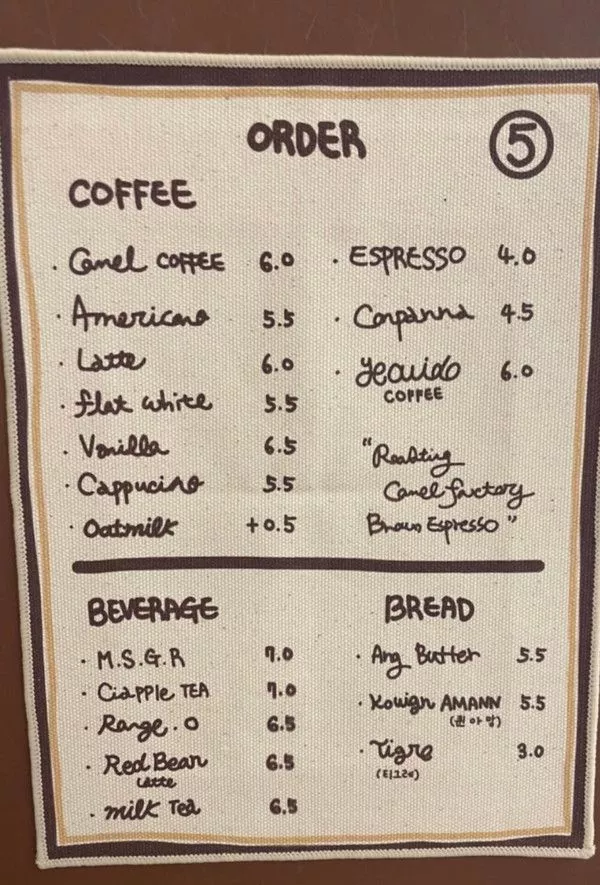 ORDER
5
COFFEE
· Camel COFFEE 6.0
· Americano 5.5
· Latte 6.0
· flat white 5.5
· Vanilla 6.5
· Cappucino 5.5
· Oatmilk +0.5
· ESPRESSO 4.0
· Conpanna 4.5
· Jeauido 6.0
COFFEE
"Roasting
Camel factory
Brown Espresso"
BEVERAGE
· M.S.G.R 7.0
· Ciapple TEA 7.0
· Range.O 6.5
· Red Bean 6.5
Latte
· milk Tea 6.5
BREAD
· Ang Butter 5.5
· Kouign AMANN 5.5
(퀸아망)
· Tigre 3.0
(티그레)